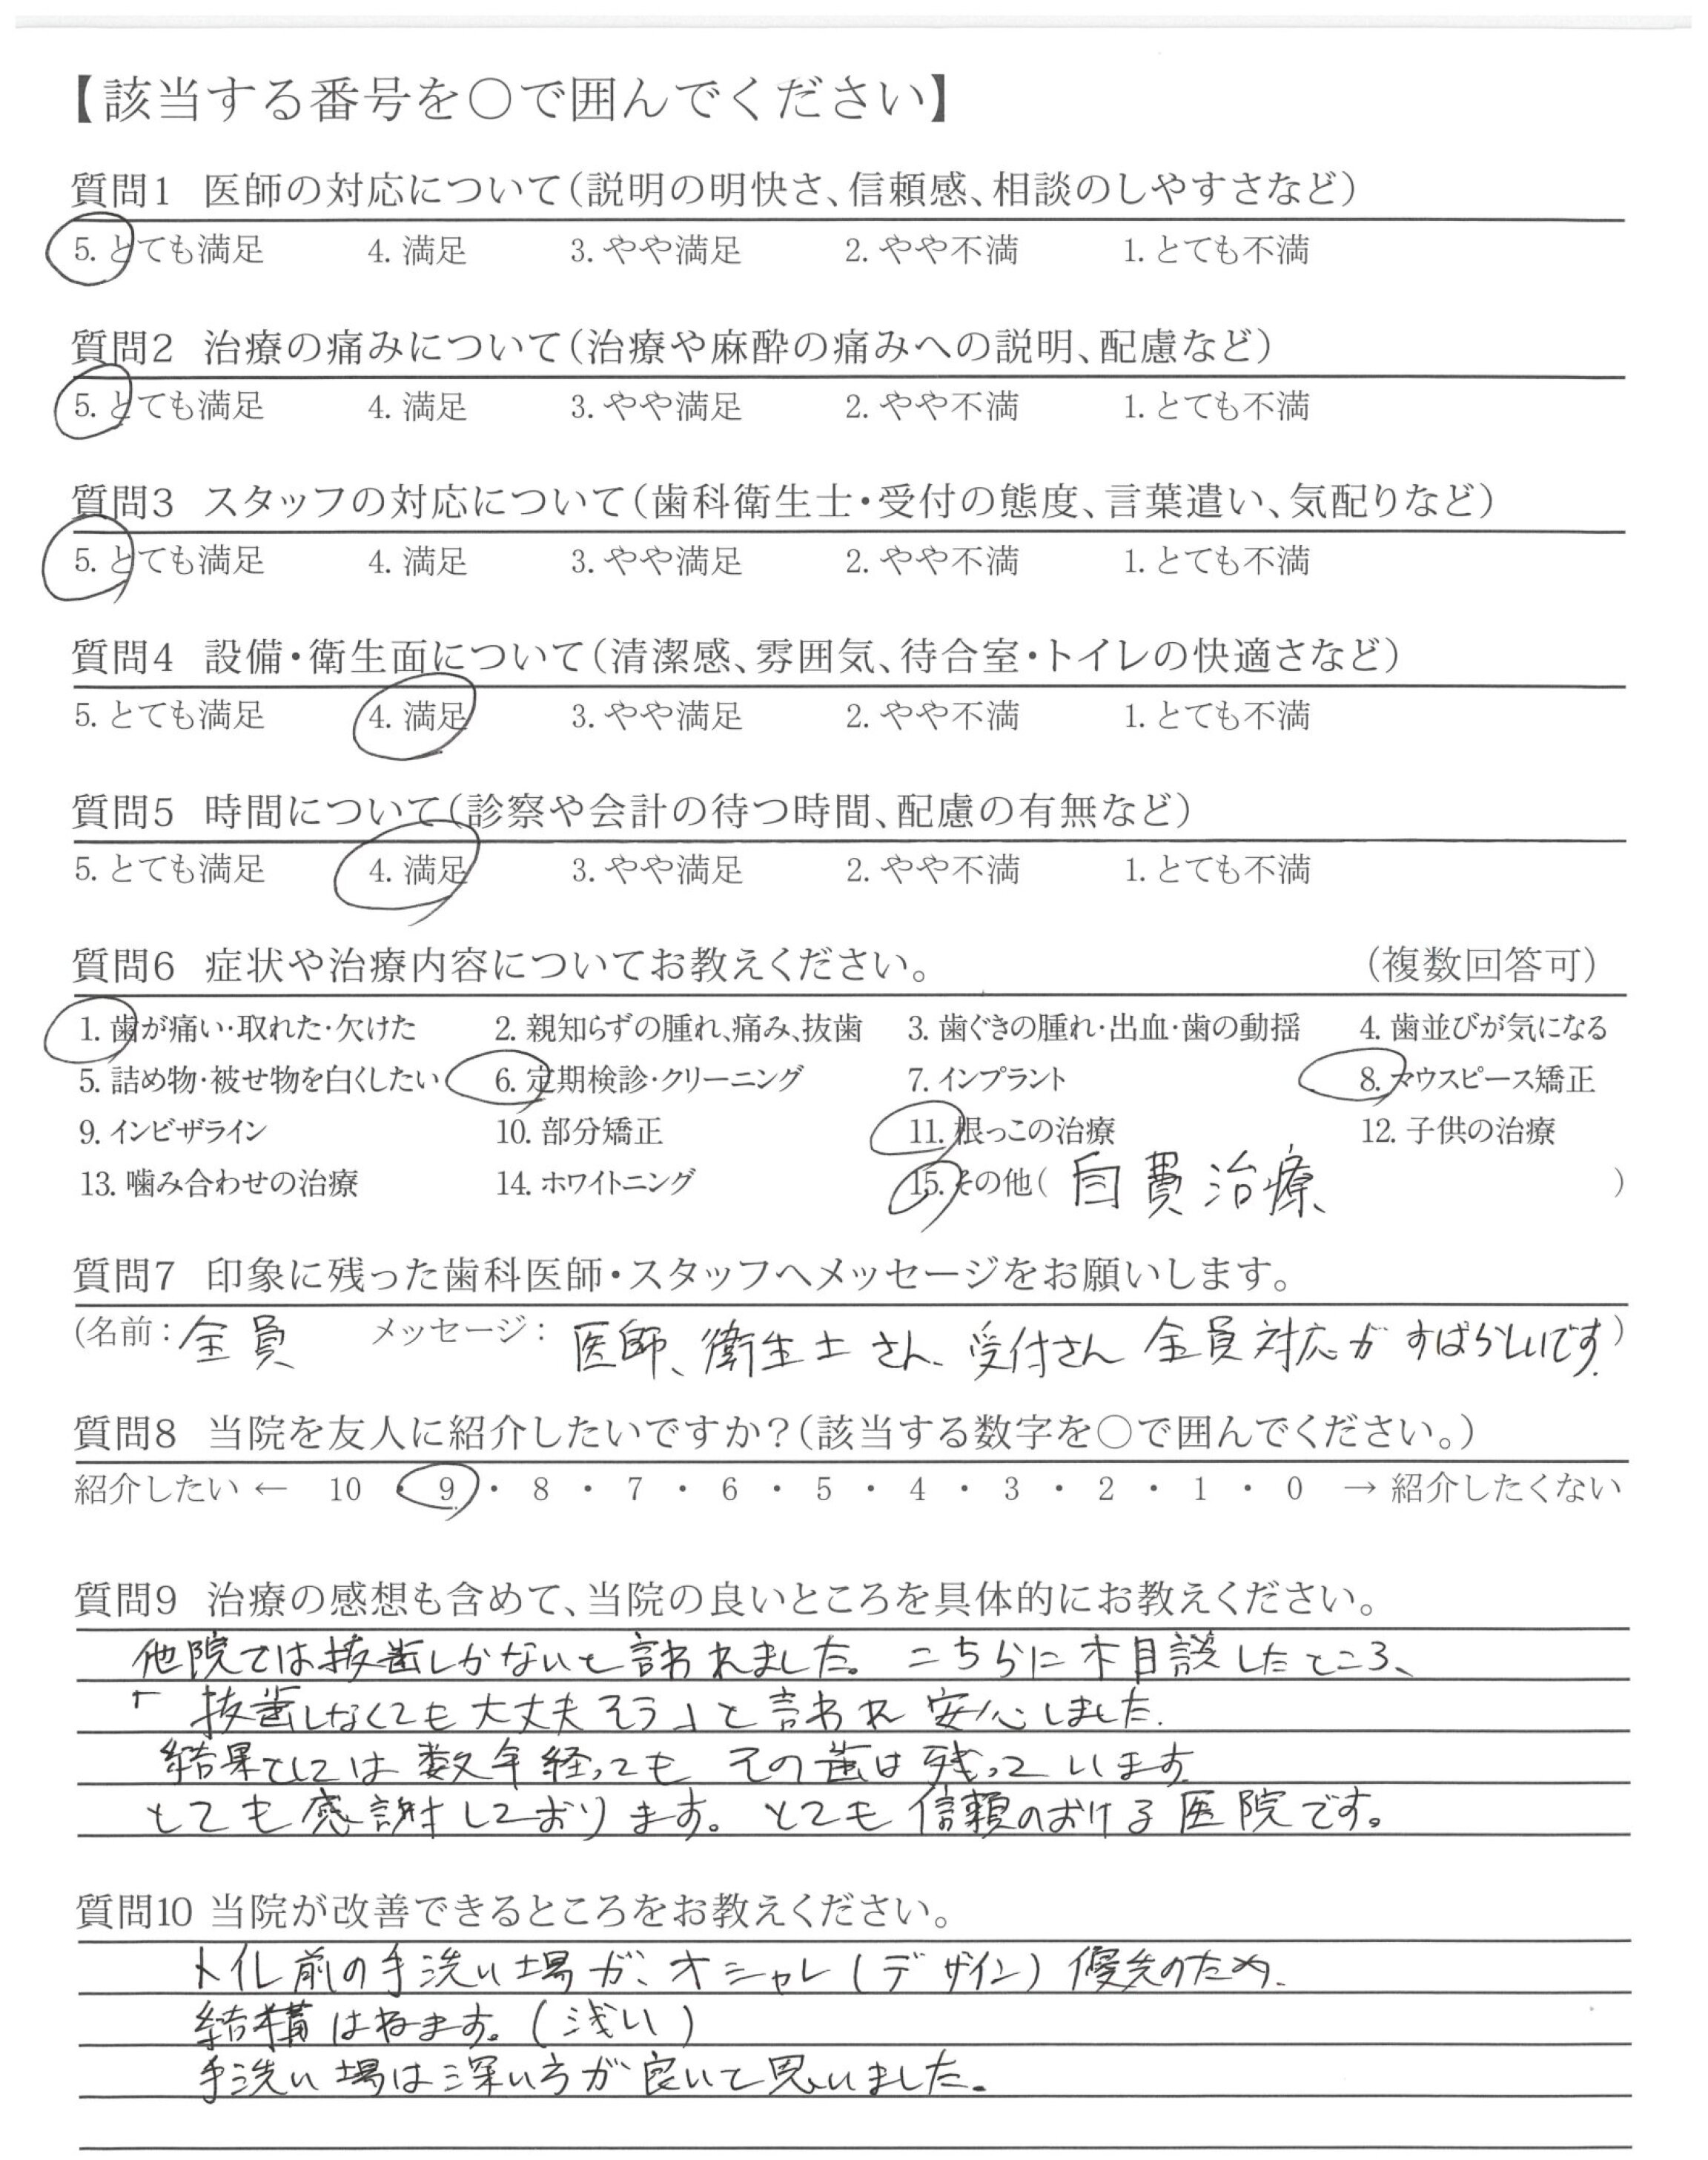 【該当する番号を〇で囲んでください】
質問1 医師の対応について(説明の明快さ、信頼感、相談のしやすさなど)
5. とても満足 4. 満足 3. やや満足 2. やや不満 1. とても不満
質問2 治療の痛みについて(治療や麻酔の痛みへの説明、配慮など)
5. とても満足 4. 満足 3. やや満足 2. やや不満 1. とても不満
質問3 スタッフの対応について(歯科衛生士・受付の態度、言葉遣い、気配りなど)
5. とても満足 4. 満足 3. やや満足 2. やや不満 1. とても不満
質問4 設備・衛生面について(清潔感、雰囲気、待合室・トイレの快適さなど)
5. とても満足 4. 満足 3. やや満足 2. やや不満 1. とても不満
質問5 時間について(診察や会計の待つ時間、配慮の有無など)
5. とても満足 4. 満足 3. やや満足 2. やや不満 1. とても不満
質問6 症状や治療内容についてお教えください。 (複数回答可)
1. 歯が痛い・取れた・欠けた 2. 親知らずの腫れ、痛み、抜歯 3. 歯ぐきの腫れ・出血・歯の動揺 4. 歯並びが気になる
5. 詰め物・被せ物を白くしたい 6. 定期検診・クリーニング 7. インプラント 8. マウスピース矯正
9. インビザライン 10. 部分矯正 11. 根っこの治療 12. 子供の治療
13. 噛み合わせの治療 14. ホワイトニング 15. その他( 自費治療 )
質問7 印象に残った歯科医師・スタッフへメッセージをお願いします。
(名前: 全員 メッセージ: 医師、衛生士さん、受付さん 全員対応がすばらしいです。)
質問8 当院を友人に紹介したいですか?(該当する数字を〇で囲んでください。)
紹介したい ← 10 ・ 9 ・ 8 ・ 7 ・ 6 ・ 5 ・ 4 ・ 3 ・ 2 ・ 1 ・ 0 → 紹介したくない
質問9 治療の感想も含めて、当院の良いところを具体的にお教えください。
他院では抜歯しかないと言われました。こちらに相談したところ、
「抜歯しなくても大丈夫そう」と言われ安心しました。
結果としては数年経ってもその歯は残っています。
とても感謝しております。とても信頼のおける医院です。
質問10 当院が改善できるところをお教えください。
トイレ前の手洗い場が、オシャレ(デザイン)優先のため、
結構はねます。(浅い)
手洗い場は深い方が良いと思いました。